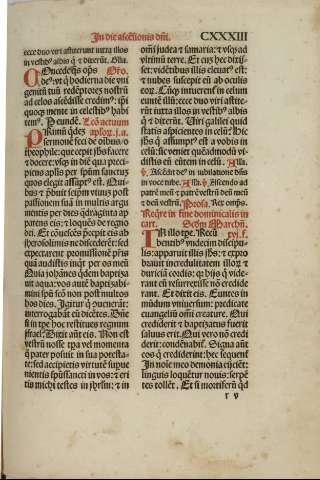 In die ascēsionis dñi.
CXXXIII
ecce duo viri astiterunt iuxta illos
in vestib⁹ albis q̃ ⁊ dixerūt. Alla.
Oncedēqs ops Oro.
de⁹: vt q̃ hodierna die vni
genitū tuū redēptorez nostrū
ad celos ascēdisse credim⁹: ip̄i
quoqz mente in celestib⁹ habi
tem⁹. P eundē. Lcō actuum
Rimū qdez aplox. j. a.
sermonē feci de oībus o
theophile: que cepit jhs facere
⁊ docere: vsqz in diē qua preci
piens aplis per spm̄ sanctuz
quos elegit assūpt⁹ est. Qui
bus ⁊ p̄buit seipm̄ viuuz post
passionem suā in multis argu
mentis per dies qdraginta ap
parens eis: ⁊ loquēs de regno
dei. Et cōuescēs precepit eis ab
iherosolimis ne discederēt: sed
expectarent promissionē pr̄is
quā audistis inqt per os meū
Quia johānes qdem baptiza
uit aqua: vos autē baptizabi
mini spū scō non post multos
hos dies. Igitur q̄ ꝯuenerāt:
interrogabāt eū dicētes. Dñe
si in tpe hoc restitues regnum
israel. Dixit aūt eis. Non est
vestrū nosse tpa vel momenta
q̄ pater posuit in sua potesta
te: sed accipietis virtutē supue
nientis spūssancti in vos: ⁊ eri
tis michi testes in jhrlm̄: ⁊ in
omī judea ⁊ samaria: ⁊ vsqz ad
vltimū terre. Et cuz hec dixi}
set: vidētibus illis eleuat⁹ est:
⁊ nubes suscepit eū ab oculis
eoꝝ. Cūqz intuerent̄ in celum
euntē illū: ecce duo viri astite
rūt iuxta illos in vestib⁹ albis
q̃ ⁊ dixerūt. Uiri galilei quid
statis aspicientes in celū: Hic
jhs q̃ assūpt⁹ est a vobis in
celū: sic veniet quēadmodū vi
distis eū eūtem in celū. Alla.
Ascēdit de⁹ in iubilatione: dn̄s
in voce tube. Alla. Ascendo ad
patrē meū ⁊ patrē vestrū deū meū
⁊ deū vestrū. Prosa. Rex omps.
Reqre in fine dominicalis in
cart. Scdm̄ Marchū.
N illo tpe. Recū xvj. f.
bentib⁹ vndecim discipu-
lis: apparuit illis jhs: ⁊ expro
brauit incredulitatem illoꝝ ⁊
duriciā cordis: qꝛ hijs q̄ vide-
rant eū resurrexisse nō credide
rant. Et dixit eis. Euntes in
mūdum vniuersum: predicate
euangeliū omī creature. Qui
crediderit ⁊ baptizatus fuerit
saluus erit. Qui vero nō credi
derit: condēnabit̄. Signa aūt
eos q̄ crediderint: hec sequent̄
In noīe meo demonia eijciēt:
linguis loquēt̄ur nouis: serpē
tes tollēt. Et si mortiferū qd
r v